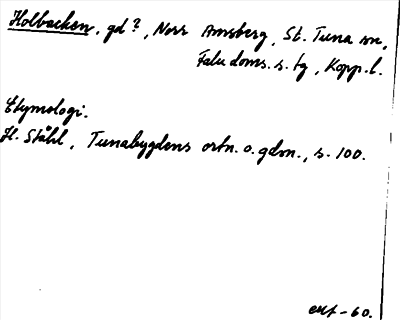 Holbacken, gd ?, Norr Amsberg, St. Tuna sn,
Falu doms. s. tg, Kopp. l.
Etymologi.
H. Ståhl, Tunabygdens ortn. o. gdsn., s. 100.
-60.